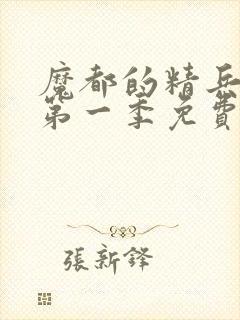 魔都的精兵
第一季免費
張新鋒